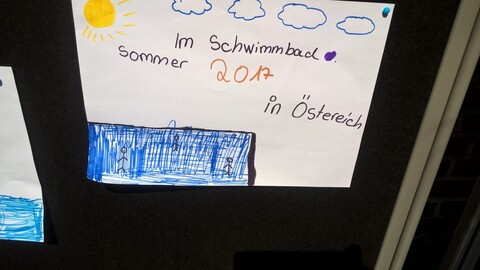 Im Schwimmbad
Sommer 2017
in Östereich